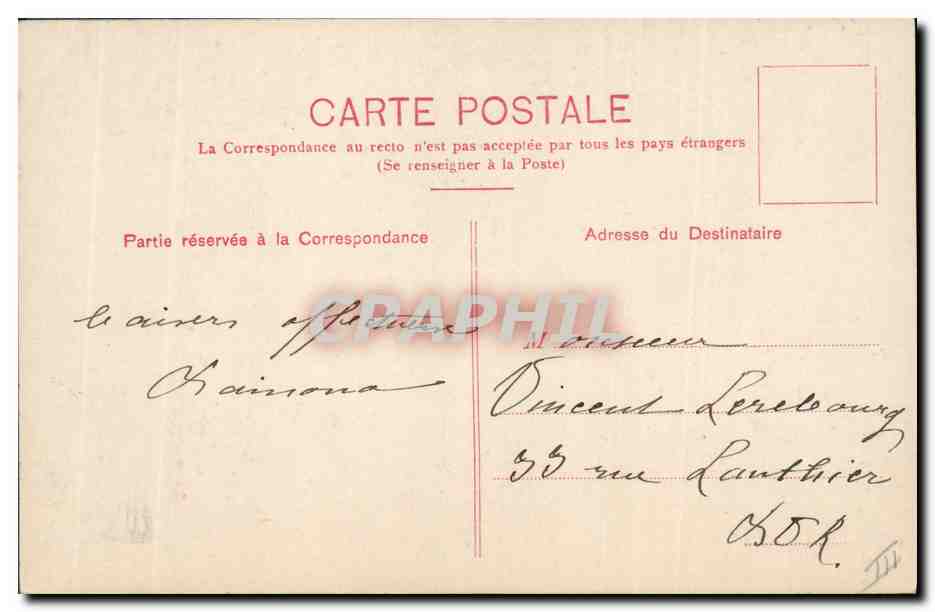 CARTE POSTALE
La Correspondance au recto n'est pas acceptée par tous les pays étrangers
(Se renseigner à la Poste)
Partie réservée à la Correspondance
Adresse du Destinataire
CPAPHIL
baisers affectueux
Monsieur
Vincent Lerebourg
33 rue Lauthier
III